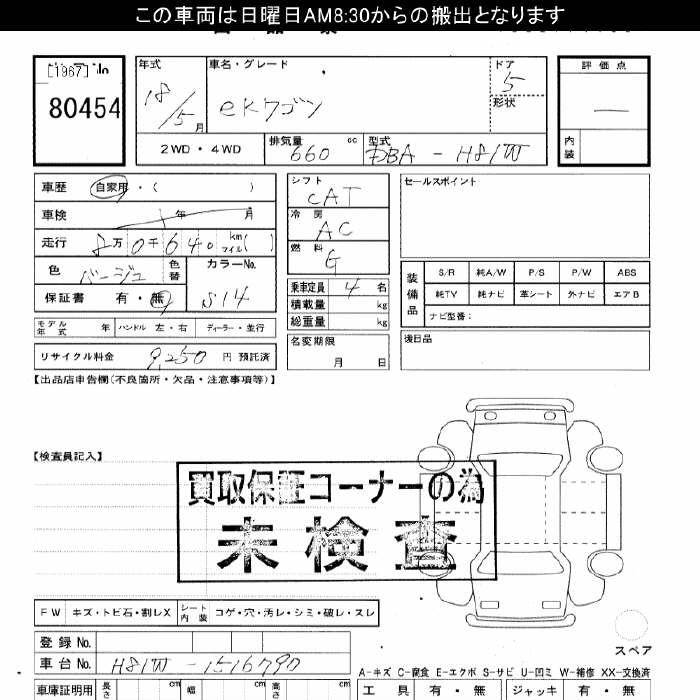 この車両は日曜日AM8:30からの搬出となります
[1967]
80454
年式
18/5月
車名・グレード
ekワゴン
ドア
5
形状
評価点
内装
2WD・4WD
排気量
660 cc
型式
DBA-H81W
車歴 自家用・( )
車検 年 月
走行 8万0千640 km マイル( )
色
ベージュ
色替
カラーNo.
S14
保証書 有・無
モデル年式 年 ハンドル 左・右 ディーラー・並行
リサイクル料金 9,250 円 預託済
シフト
CAT
冷房
AC
燃料
G
乗車定員 4 名
積載量 kg
総重量 kg
名変期限
月 日
セールスポイント
装備品
S/R 純A/W P/S P/W ABS
純TV 純ナビ 革シート 外ナビ エアB
ナビ型番:
後日品
【出品店申告欄(不良箇所・欠品・注意事項等)】
【検査員記入】
買取保証コーナーの為
未検査
FW キズ・トビ石・割レX シート内装 コゲ・穴・汚レ・シミ・破レ・スレ
登録No.
車台No. H81W-1516790
スペア
A-キズ C-腐食 E-エクボ S-サビ U-凹ミ W-補修 XX-交換済
車庫証明用 長さ cm 幅 cm 高さ cm
工具 有・無 ジャッキ 有・無